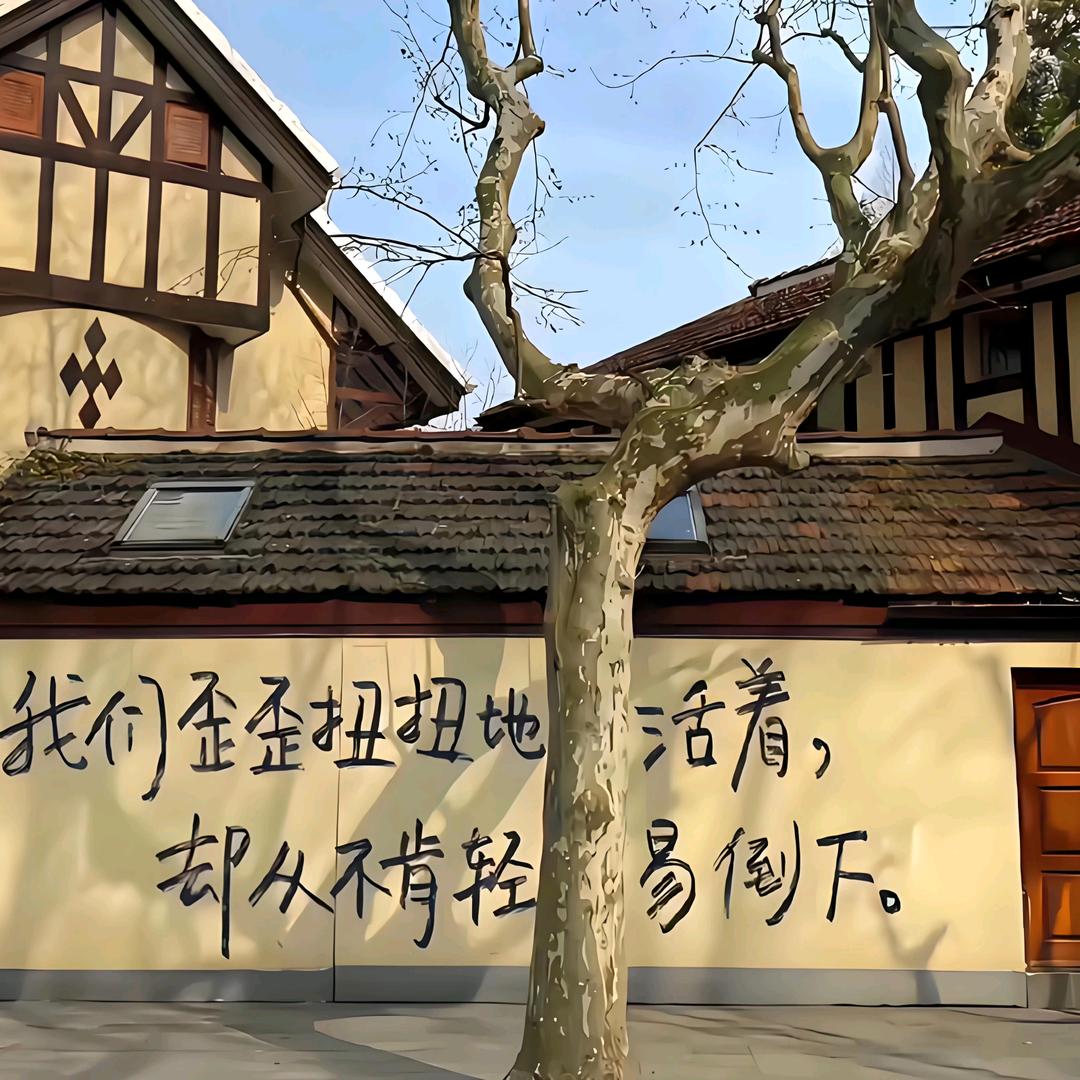 我们歪歪扭扭地生活着，
却从不肯轻易倒下。